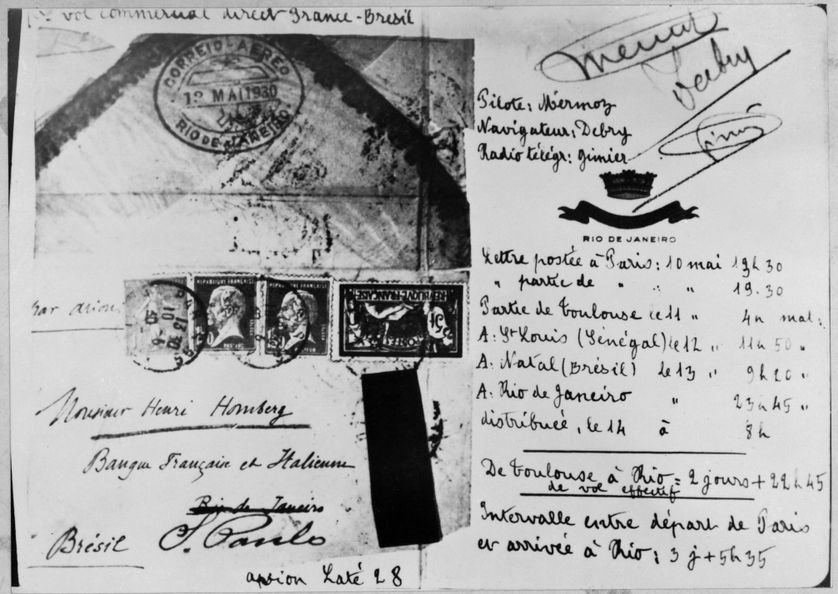 1er vol commercial direct France-Brésil
CORREIO AEREO
12 MAI 1930
RIO DE JANEIRO
par avion
REPUBLIQUE FRANÇAISE
REPUBLIQUE FRANÇAISE
REPUBLIQUE FRANÇAISE
POSTES
Monsieur Henri Homberg
Banque Française et Italienne
Rio de Janeiro
S. Paulo
Brésil
avion Laté 28
Debry
Gimié
Pilote: Mermoz
Navigateur: Debry
Radio télégr: Gimier
RIO DE JANEIRO
Lettre postée à Paris: 10 mai 13h 30
" partie de " " 19.30
Partie de Toulouse le 11 " 4h mat:
A. St Louis (Sénégal) le 12 " 11h 50 "
A. Natal (Brésil) le 13 " 9h 20 "
A. Rio de Janeiro " 23h 45 "
distribuée, le 14 à 8h
De Toulouse à Rio = 2 jours + 22h45
de vol effectif
Intervalle entre départ de Paris
et arrivée à Rio: 3 j + 5h 35